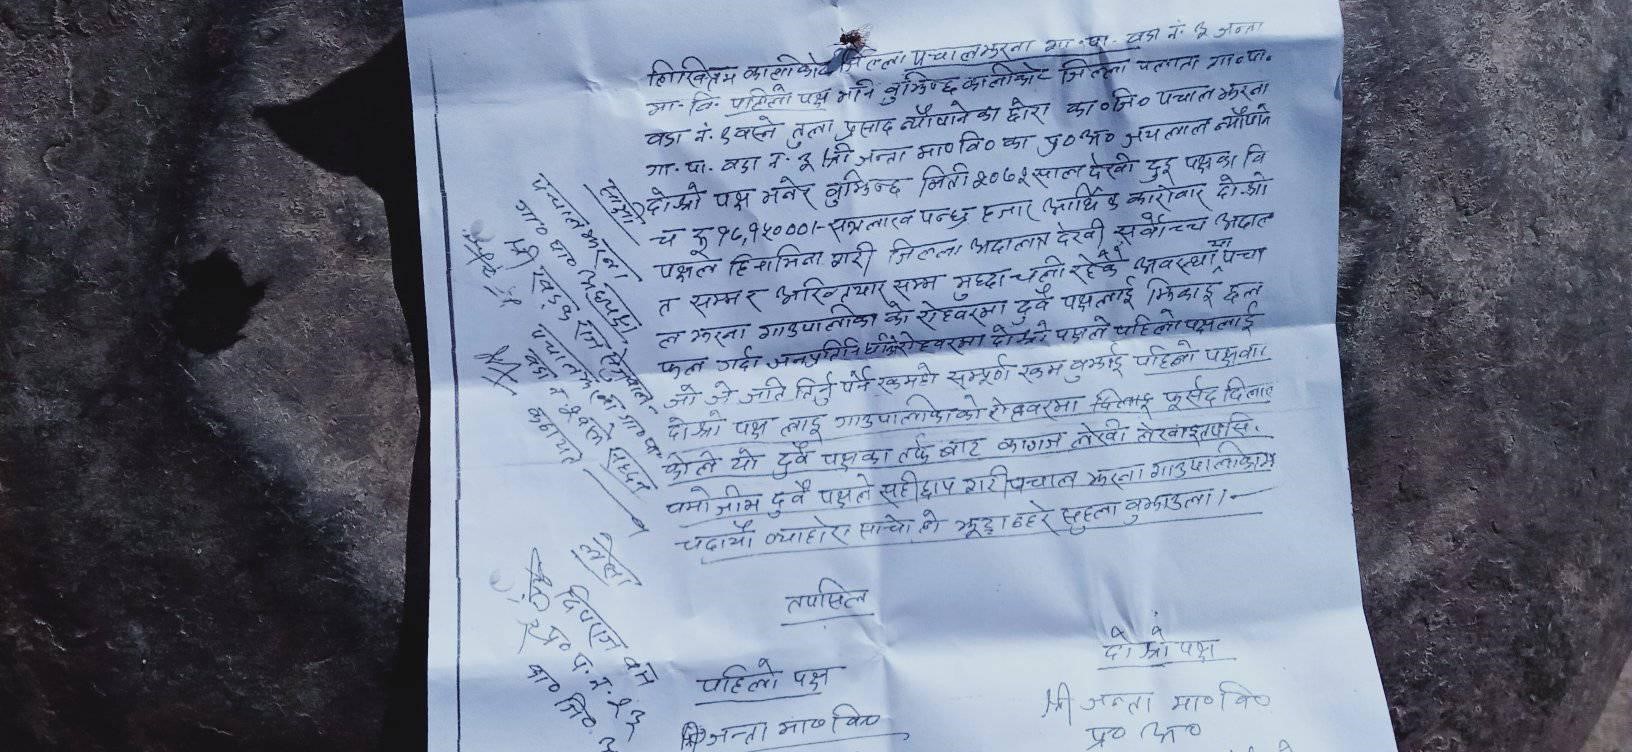 लिखितम कालीकोट जिल्ला पचालझरना गा.पा. वडा नं. ३ जन्ता
मा. वि. पहिलो पक्ष भनि बुझिन्छ कालीकोट जिल्ला पलाता गा०पा०
वडा नं. ९ वस्ने तुला प्रसाद न्यौपानेका छोरा का०जि० पचालझरना
गा. पा. वडा नं. ३ श्री जन्ता मा०वि० का प्र०अ० जयलाल न्यौपाने
दोश्रो पक्ष भनेर बुझिन्छ मिती २०७२ साल देखी दुइ पक्षका वि
च रु १७,१५०००।- सत्रलाख पन्ध्र हजार आर्थिक कारोवार दोश्रो
पक्षल हिनामिना गरी जिल्ला अदालत देखी सर्वोच्च अदाल
त सम्म र अख्तियार सम्म मुद्धा चली रहेकै अवस्थामा पचा
ल झरना गाउपालीका को रोहवरमा दुवै पक्षलाई झिकाइ छल
फल गर्दा जनप्रतिनिधीको रोहवरमा दोश्रो पक्षले पहिलो पक्षलाई
जो जे जति तिर्नु पर्ने रकमहो सम्पूर्ण रकम बुझाई पहिलो पक्षवाट
दोश्रो पक्ष लाइ गाउपालीकाको रोहवरमा दिलाइ फूर्सद दिलाए
कोले यो दुवै पक्षका तर्फ बाट कागज लेखी लेखाइ तपसि.
वमोजीम दुवै पक्षले सहीछाप गरी पचाल झरना गाउपालीकामा
चढायौं व्याहोरा साचो हो झुठा ठहरे सहुला बुझाउला।
तपसिल
पहिलो पक्ष
श्री जन्ता मा०वि०
दोश्रो पक्ष
श्री जन्ता मा०वि०
प्र० अ०
साक्षी
पचालझरना
गा० पा० अध्यक्ष
श्री खड्क
पचालझरना गा० पा०
वडा नं वस्ने
लेखक
प्र० प. नं.
का० जि०